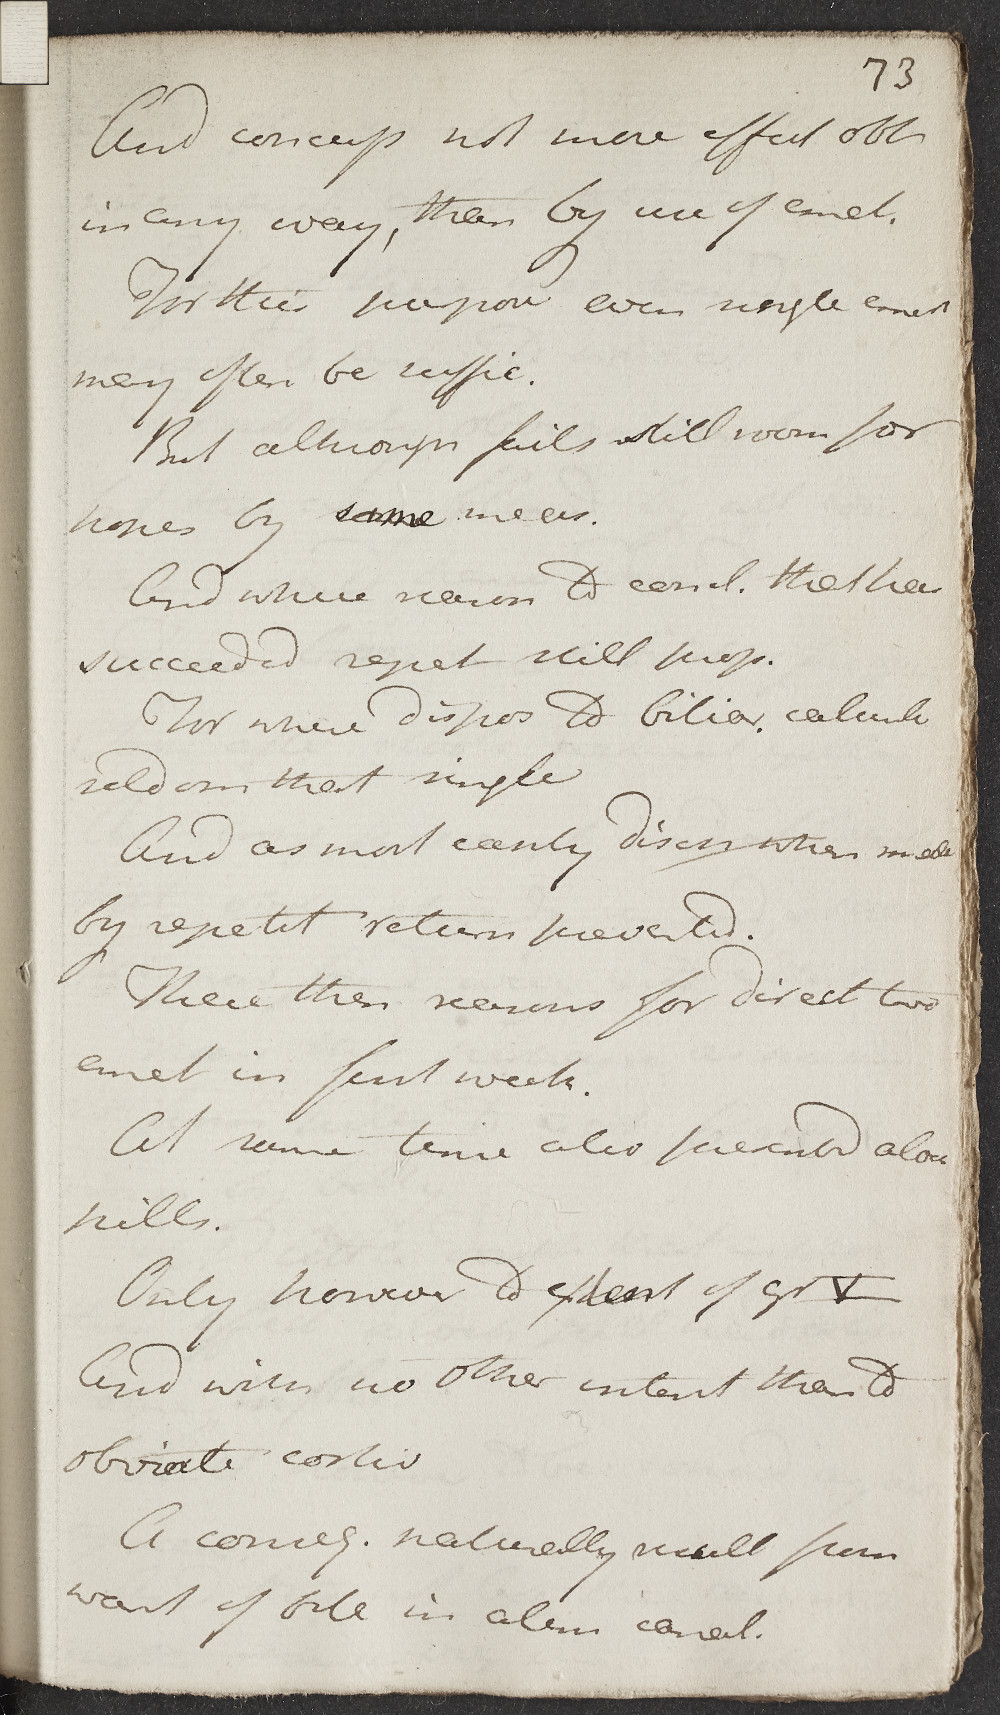 73
And conceip not more effect obt
in any way, than by use of emet.
For this purpose even single emet
may often be suffic.
But although fails still room for
hopes by same means.
And where reason to concl. that has
succeeded repet still prop.
For where dispos to biliar. calculi
seldom that single
And as most easily when made
by repetit return prevented.
There then reasons for direct two
emet in first week.
At same time also presented aloet
pills.
Only however to extent of gr V
And with no other intent than to
obviate costiv
A conseq. naturally result from
want of bile in alim canal.